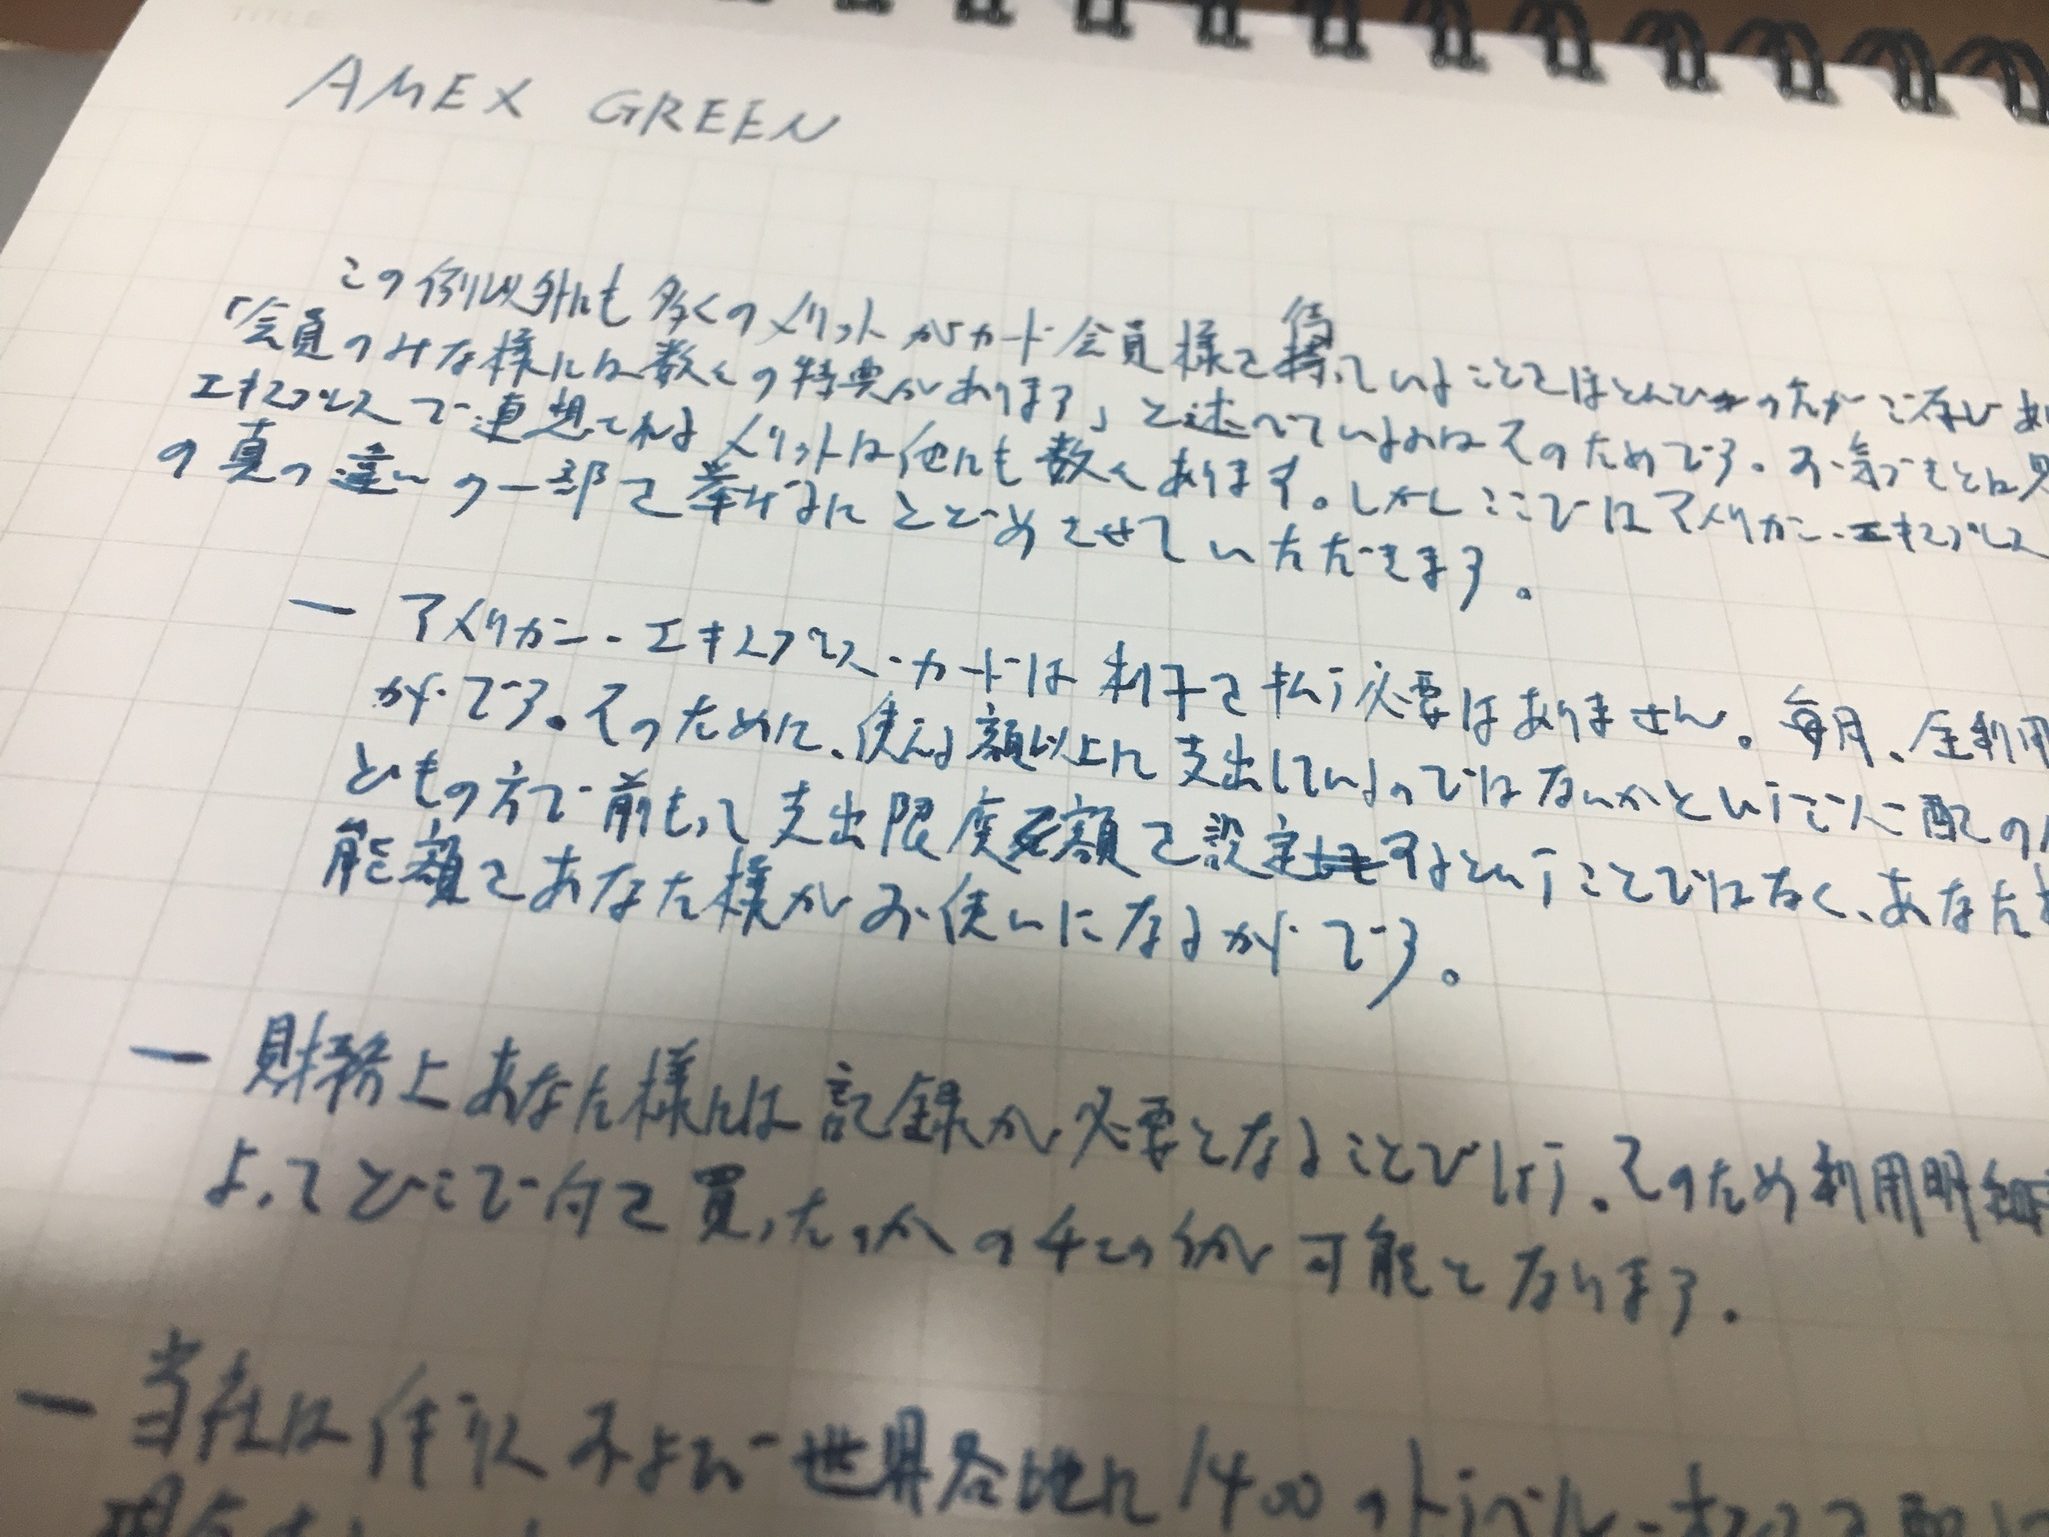 TITLE
AMEX GREEN
この例以外にも多くのメリットがカード会員様を待っていることをほとんどの方がご存じ
「会員のみな様には数々の特典があります」と述べているのはそのためです。お気づきとは
エキスプレスで連想されるメリットは他にも数々あります。しかしここではアメリカン・エキスプレス
の真の違いの一部を挙げるにとどめさせていただきます。
ー アメリカン・エキスプレス・カードは利子を払う必要はありません。毎月、全利用
がです。そのために、使える額以上に支出しているのではないかというご心配の
どもの方で前もって支出限度額を設定するということではなく、あなた
能額をあなた様がお使いになるがです。
ー 財務上あなた様には記録が必要となることでしょう。そのため利用明細
よってどこで何を買ったかのチェックが可能となります。
ー 当社は 世界各地に1400のトラベル・オフィスを配